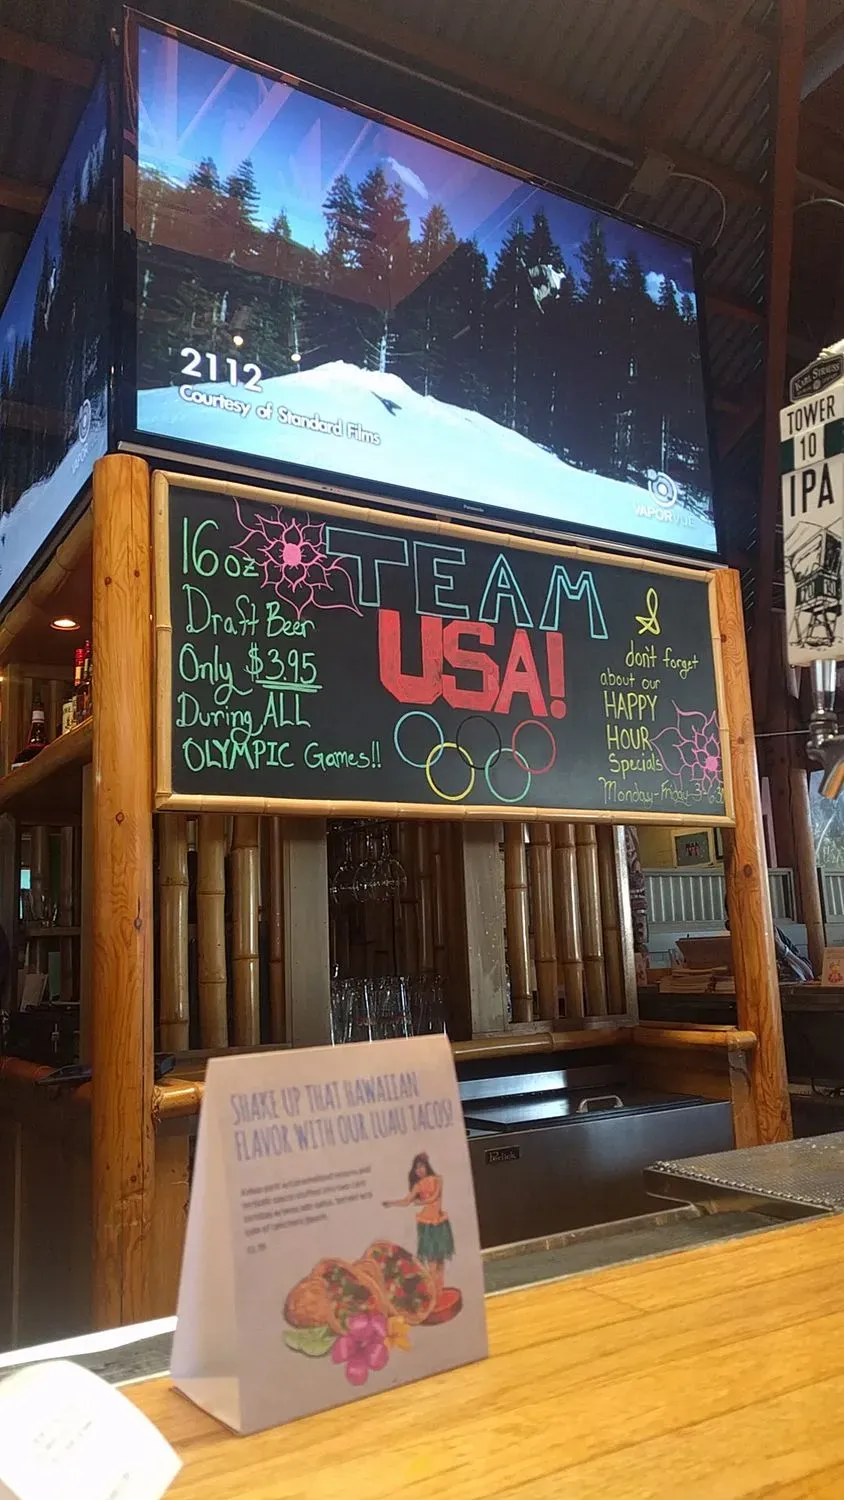 2112
Courtesy of Standard Films
VAPORVUE
Panasonic
KARL STRAUSS
TOWER
10
IPA
16oz
Draft Beer
Only $3.95
During ALL
OLYMPIC Games!!
TEAM
USA!
&
don't forget
about our
HAPPY
HOUR
Specials
Monday-Friday 3-6:30
Perlick
SHAKE UP THAT HAWAIIAN
FLAVOR WITH OUR LUAU TACOS!